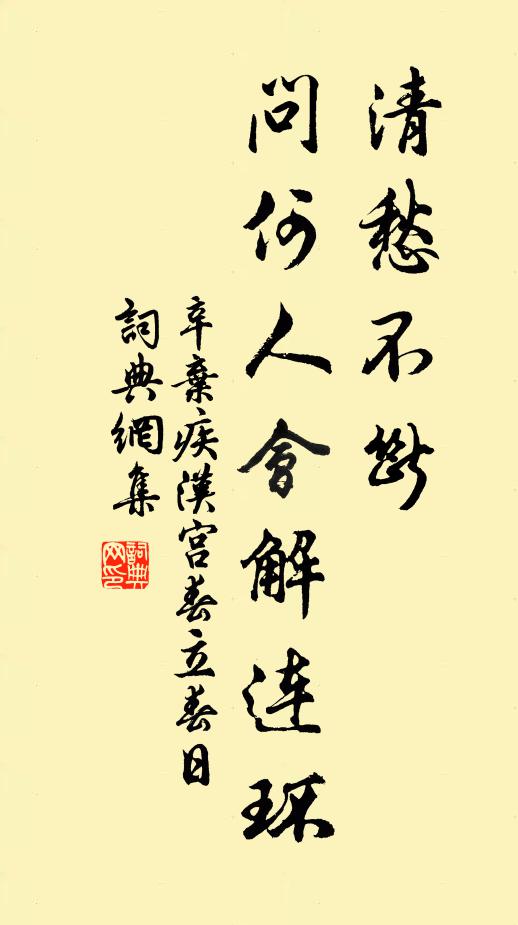 清愁不斷
問何人會解連環
辛棄疾漢宮春立春日
詞典網集
詞典網印